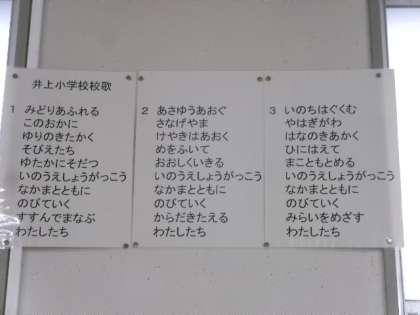 井上小学校校歌
1 みどりあふれる
このおかに
ゆりのきたかく
そびえたち
ゆたかにそだつ
いのうえしょうがっこう
なかまとともに
のびていく
すすんでまなぶ
わたしたち
2 あさゆうあおぐ
さなげやま
けやきはあおく
めをふいて
おおしくいきる
いのうえしょうがっこう
なかまとともに
のびていく
からだきたえる
わたしたち
3 いのちはぐくむ
やはぎがわ
はなのきあかく
ひにはえて
まこともとめる
いのうえしょうがっこう
なかまとともに
のびていく
みらいをめざす
わたしたち